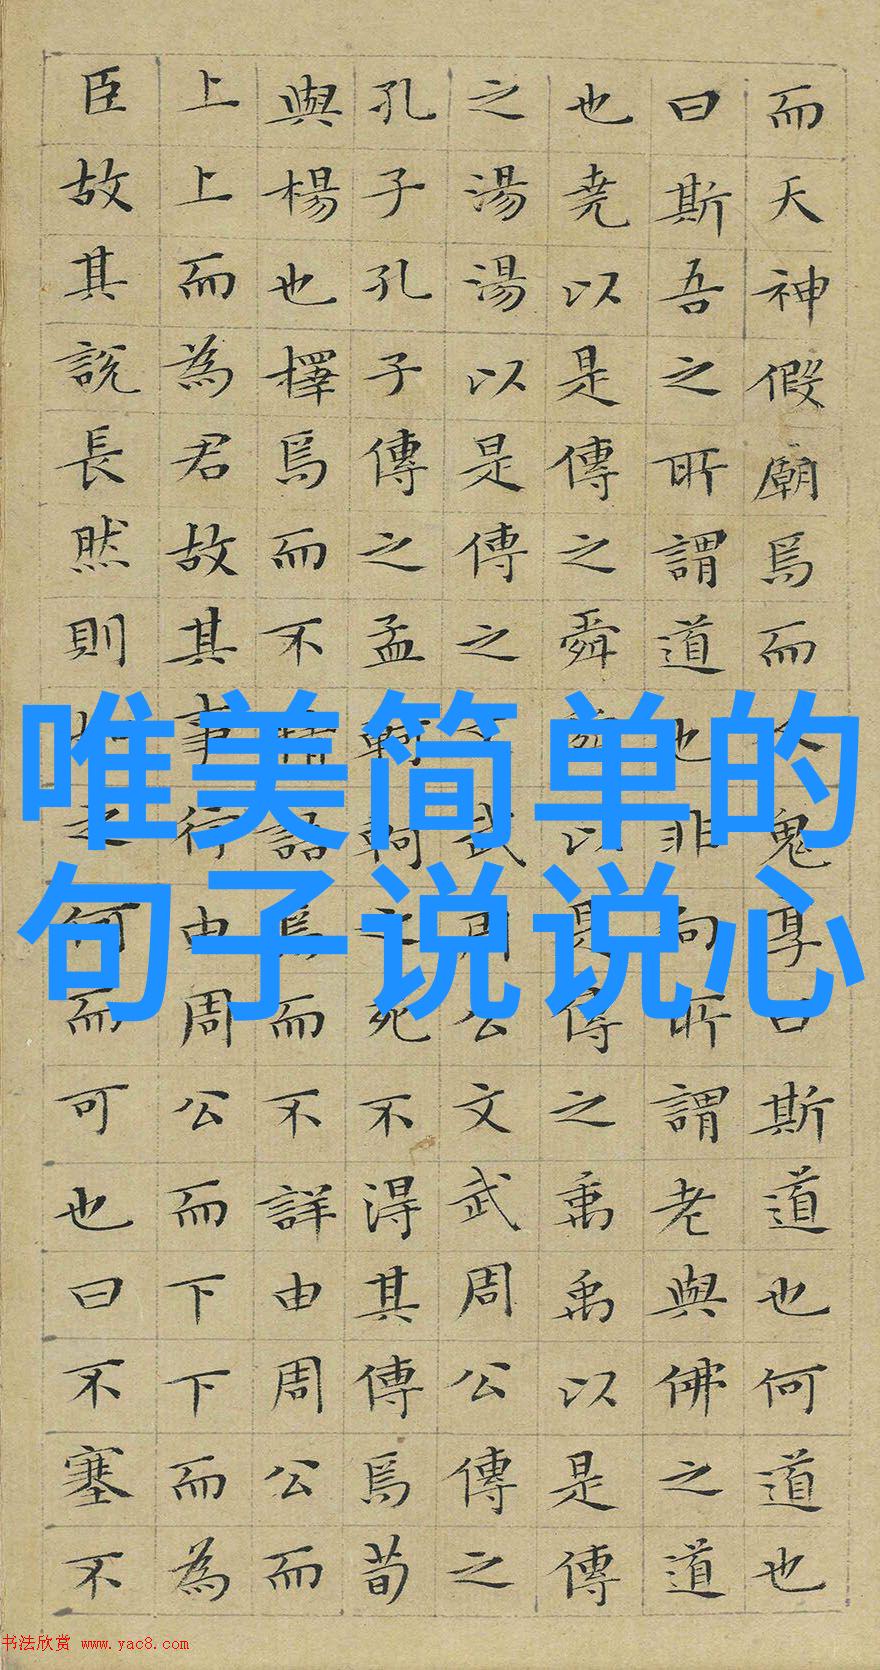 而天神假廟焉而人鬼享曰斯道也何道也
曰斯吾之所謂道也非向所謂老與佛之道
也堯以是傳之舜舜以是傳之禹禹以是傳
之湯湯以是傳之文武周公文武周公傳之
孔子孔子傳之孟軻軻之死不得其傳焉荀
與楊也擇焉而不精語焉而不詳由周公而
上上而為君故其事行由周公而下下而為
臣故其說長然則如之何而可也曰不塞不
唯美简单的
句子说说心
书法欣赏 www.yac8.com